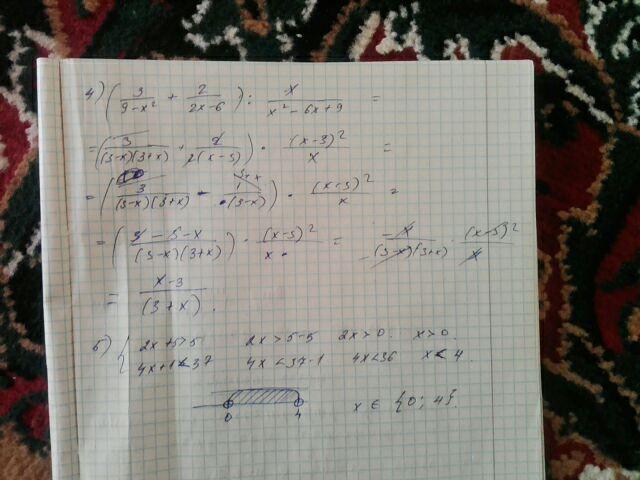 4) (3/(9-x²) + 2/(2x-6)) : x/(x²-6x+9) =
= (3/((3-x)(3+x)) + 2/(2(x-3))) · (x-3)²/x =
= (3/((3-x)(3+x)) - 1/(3-x)) · (x-3)²/x =
= ((3-3-x)/((3-x)(3+x))) · (x-3)²/x = -x/((3-x)(3+x)) · (x-3)²/x
= (x-3)/(3+x).
5) { 2x+5>5 2x>5-5 2x>0 x>0
4x+1<37 4x<37-1 4x<36 x<4.
0 4 x ∈ {0; 4}.